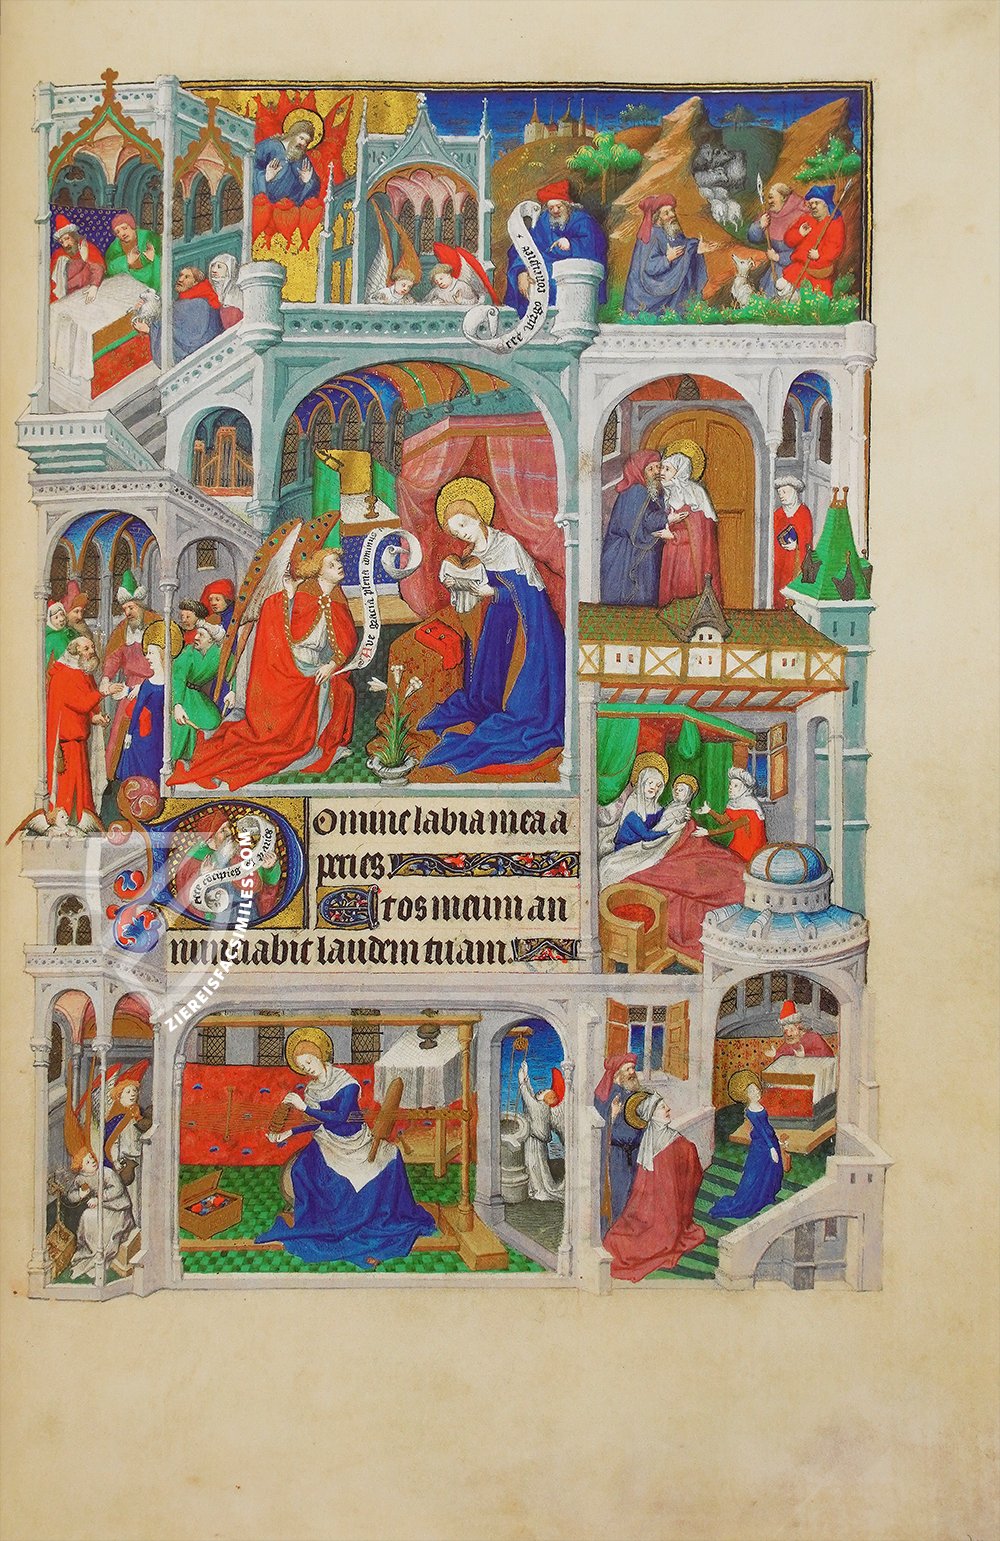 ecce virgo concipiet
Ave gracia plena dominus
Domine labia mea a
peries.
Et os meum an
nunciabit laudem tuam.
ecce concipies
ZIEREISFACSIMILES.COM